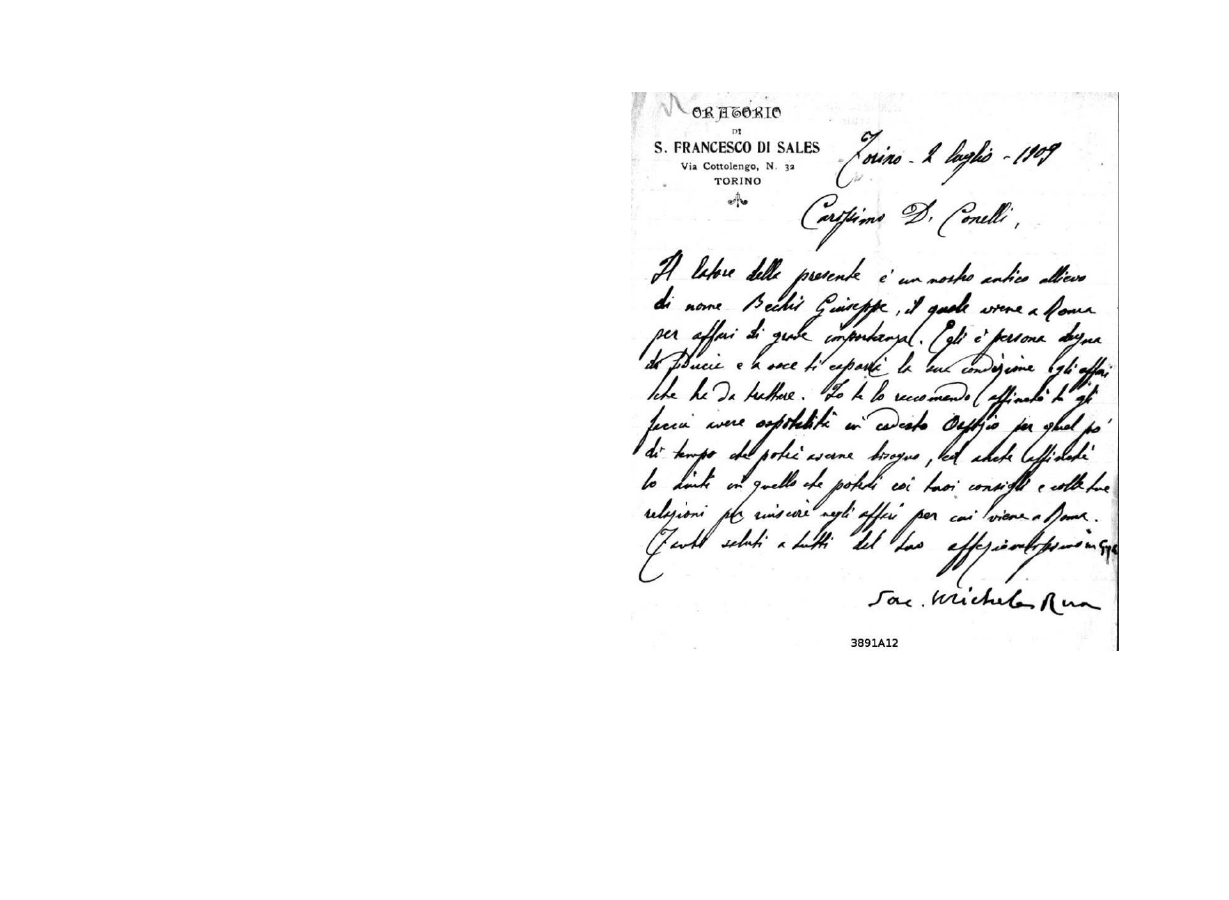 ORATORIO
DI
S. FRANCESCO DI SALES
Via Cottolengo, N. 32
TORINO
Torino - 2 luglio - 1909
Carissimo D. Conelli,
Il latore della presente è un nostro antico allievo
di nome Bechis Giuseppe, il quale viene a Roma
per affari di grave importanza. Egli è persona degna
di fiducia e a voce ti esporrà la sua condizione e gli affari
che ha da trattare. Io te lo raccomando affinchè tu gli
faccia avere ospitalità in codesto Ospizio per quel po'
di tempo che potrà averne bisogno, ed anche affinchè
lo aiuti in quello che potrai coi tuoi consigli e colle tue
relazioni per riuscire negli affari per cui viene a Roma.
Tanti saluti a tutti dal tuo affezionatissimo in
Sac. Michele Rua
3891A12